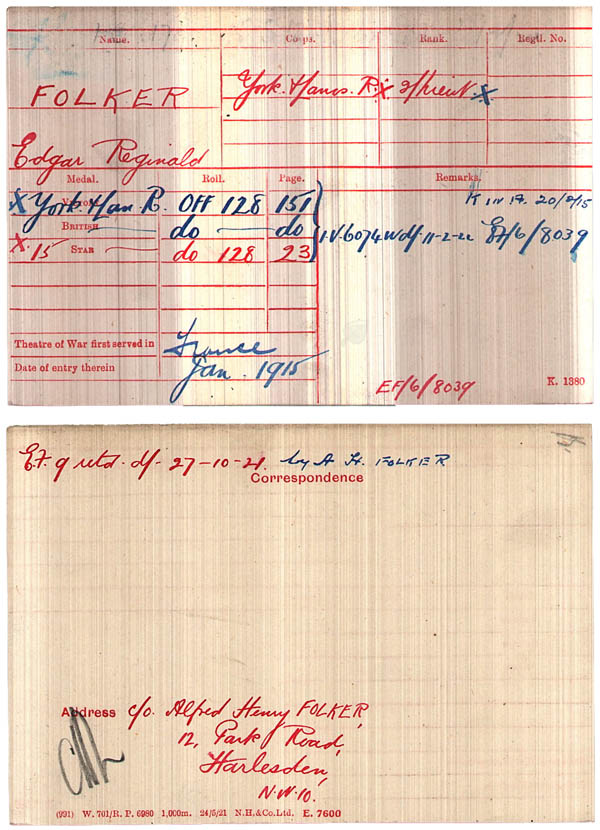 Name. Corps. Rank. Regtl. No.
FOLKER York. & Lancs. R. X 2/Lieut. X
Edgar Reginald
Medal. Roll. Page. Remarks.
X VICTORY York & Lan R. OFF 128 151 K in A. 20/2/15
BRITISH do do I.V. 6074 W df. 11-2-22 EF/6/8039
X 15 STAR do 128 23
Theatre of War first served in France
Date of entry therein Jan. 1915
EF/6/8039 K. 1380
E.F. 9 retd. df. 27-10-21. by A H. FOLKER
Correspondence
Address c/o. Alfred Henry FOLKER,
12, Park Road,
Harlesden,
N.W.10.
(991) W. 701/R. P. 6980 1,000m. 24/5/21 N.H.&Co.Ltd. E. 7600